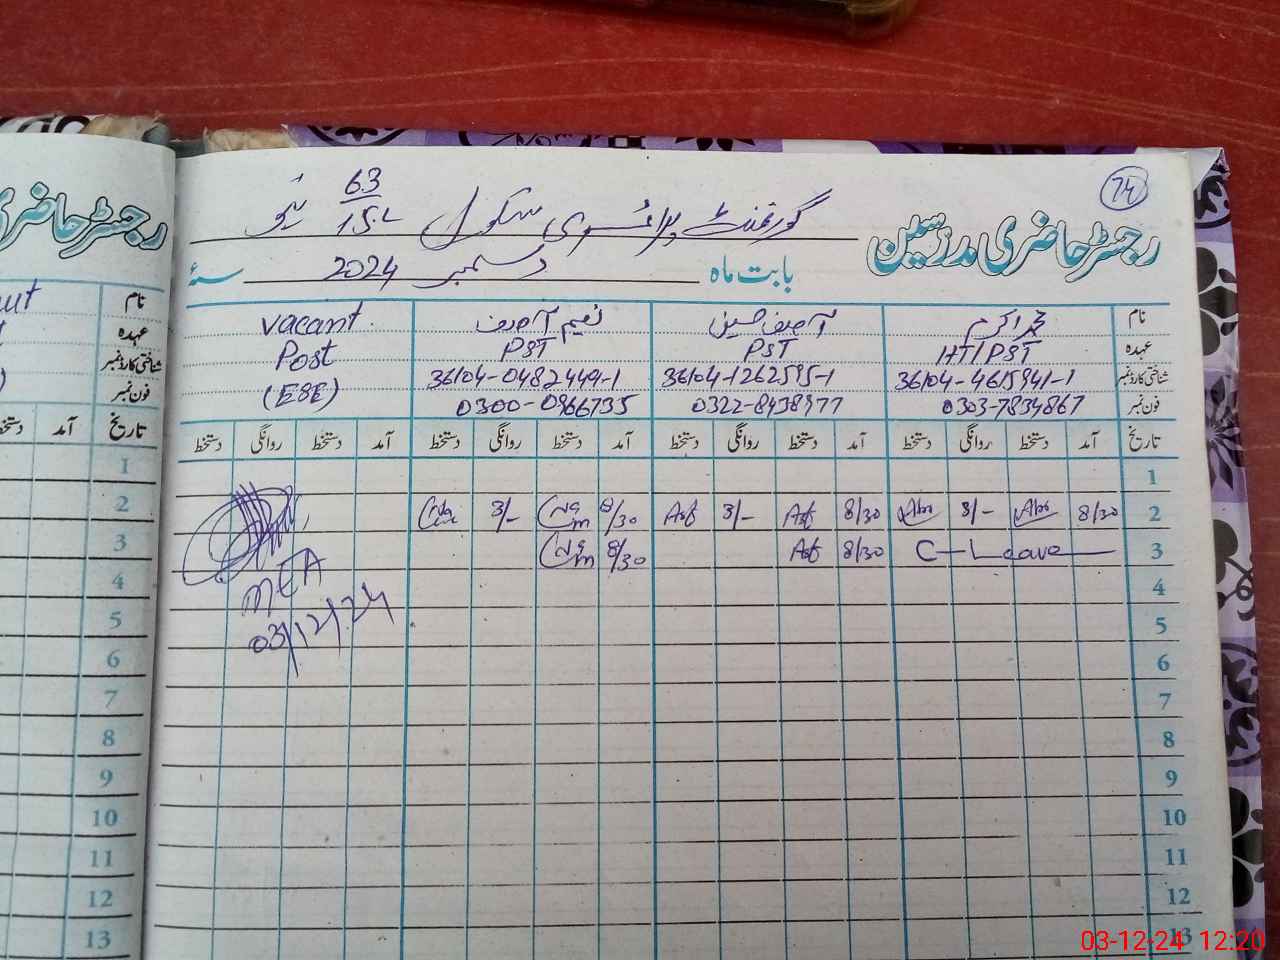 74
رجسٹر حاضری مدرسین
گورنمنٹ پرائمری سکول 63/15-L
بابت ماہ دسمبر 2024 سنۂ
نام محمد اکرم آصف حسین نعیم آصف Vacant
عہدہ HT/PST PST PST Post
شناختی کارڈ نمبر 36104-4615941-1 36104-1262595-1 36104-0482449-1 (ESE)
فون نمبر 0303-7834867 0322-8438977 0300-0966735
تاریخ آمد دستخط روانگی دستخط آمد دستخط روانگی دستخط آمد دستخط روانگی دستخط آمد دستخط روانگی دستخط
1
2 8/30 3/- 8/30 Asf 3/- Asf 8/30 3/-
3 C-Leave 8/30 Asf 8/30
4
MEA
5
03/12/24
6
7
8
9
10
11
12
13
رجسٹر حاضری
نام
عہدہ
شناختی کارڈ نمبر
فون نمبر
تاریخ آمد دستخط
1
2
3
4
5
6
7
8
9
10
11
12
13
03-12-24 12:20